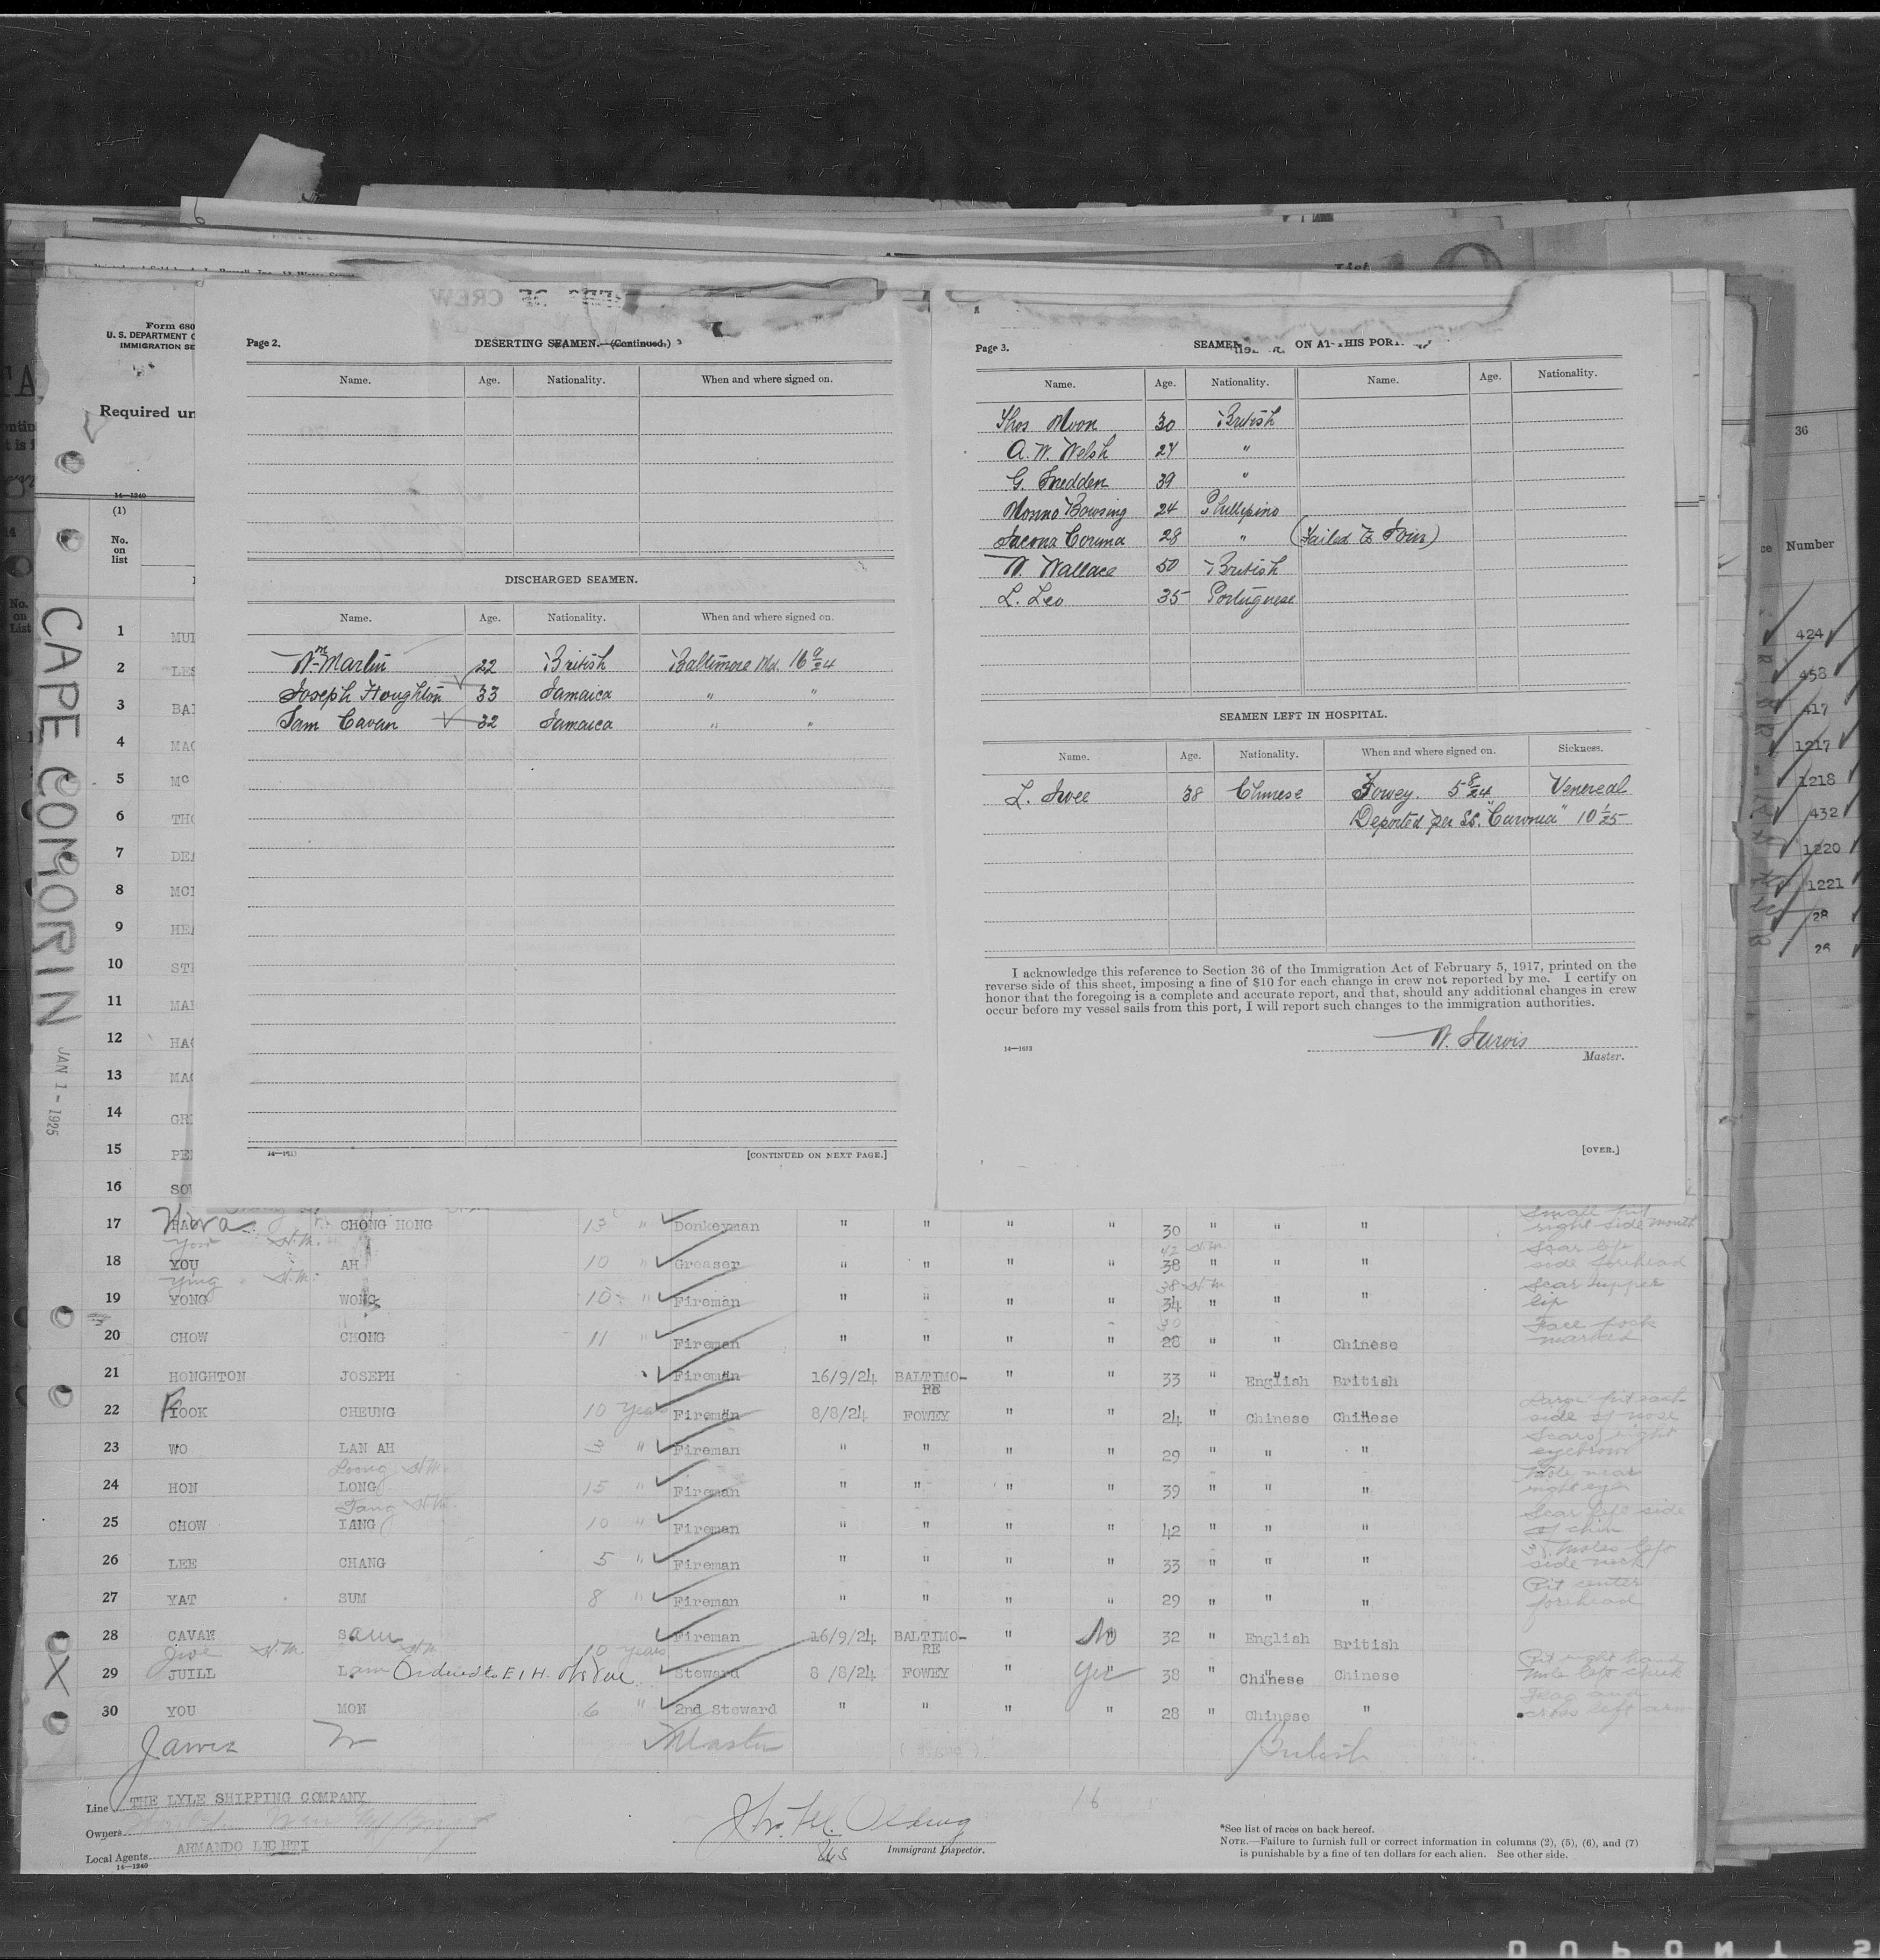 Form 680
U. S. DEPARTMENT
IMMIGRATION SE
Required un
14—1240
(1)
No.
on
list
CAPE COMORIN
JAN 1 - 1925
Page 2.
DESERTING SEAMEN.—(Continued.)
Name. Age. Nationality. When and where signed on.
DISCHARGED SEAMEN.
Name. Age. Nationality. When and where signed on.
Wm Martin 22 British Baltimore Md. 16 9/24
Joseph Houghton 33 Jamaica " "
Sam Cavan 32 Jamaica " "
[CONTINUED ON NEXT PAGE.]
Page 3.
SEAMEN ON AT THIS PORT
Name. Age. Nationality. Name. Age. Nationality.
Thos Moon 30 British
A. W. Welsh 24 "
G. Snedden 39 "
Monno Bowsing 24 Phillipino
Jacona Coruna 28 " (Failed to Join)
W. Wallace 50 British
L. Leo 35 Portuguese
SEAMEN LEFT IN HOSPITAL.
Name. Age. Nationality. When and where signed on. Sickness.
L. Jwee 38 Chinese Fowey. 5 8/24 Venereal
Deported per SS. "Caronia" 10 1/25
I acknowledge this reference to Section 36 of the Immigration Act of February 5, 1917, printed on the
reverse side of this sheet, imposing a fine of $10 for each change in crew not reported by me. I certify on
honor that the foregoing is a complete and accurate report, and that, should any additional changes in crew
occur before my vessel sails from this port, I will report such changes to the immigration authorities.
W. Jarvis
14—1613
Master.
[OVER.]
1 MUI
2 LES
3 BAI
4 MAC
5 MC
6 THO
7 DEA
8 MCI
9 HEA
10 STE
11 MAI
12 HAC
13 MAC
14 GRE
15 PEI
16 SOU
Small pit
right side mouth
17 CHONG HONG 13 " Donkeyman " " " " 30 " " "
You H.M. 42 H.M. Scar left
18 YOU AH 10 " Greaser " " " " 38 " " " side forehead
Ying H.M. 38 H.M. Scar upper
19 YONG WONG 10 " Fireman " " " " 34 " " " lip
30 Face pock
20 CHOW CHONG 11 " Fireman " " " " 28 " " Chinese marked
21 HONGHTON JOSEPH Fireman 16/9/24 BALTIMO-RE " " 33 " English British
Large pit each
22 FOOK CHEUNG 10 years Fireman 8/8/24 FOWEY " " 24 " Chinese Chinese side of nose
Scars right
23 WO LAN AH 3 " Fireman " " " " 29 " " " eyebrow
Loong H.M. Mole near
24 HON LONG 15 " Fireman " " " " 39 " " " right eye
Tang H.M. Scar left side
25 CHOW IANG 10 " Fireman " " " " 42 " " " of chin
3 moles left
26 LEE CHANG 5 " Fireman " " " " 33 " " " side neck
Pit center
27 YAT SUM 8 " Fireman " " " " 29 " " " forehead
28 CAVAN Sam Fireman 16/9/24 BALTIMO-RE " No 32 " English British
H.M. H.M. 10 years Pit right hand
29 JUILL Lam Ordered to E I H. Steward 8/8/24 FOWEY " Yes 38 " Chinese Chinese mole left cheek
Flag and
30 YOU MON 6 " 2nd Steward " " " " 28 " Chinese " cross left arm
Jarvis W Master British
Line THE LYLE SHIPPING COMPANY
Owners
Local Agents ARMANDO LIGHTI
14—1240
16
Immigrant Inspector.
*See list of races on back hereof.
NOTE.—Failure to furnish full or correct information in columns (2), (5), (6), and (7)
is punishable by a fine of ten dollars for each alien. See other side.
36
Number
424
458
417
1217
1218
432
1220
1221
28
26